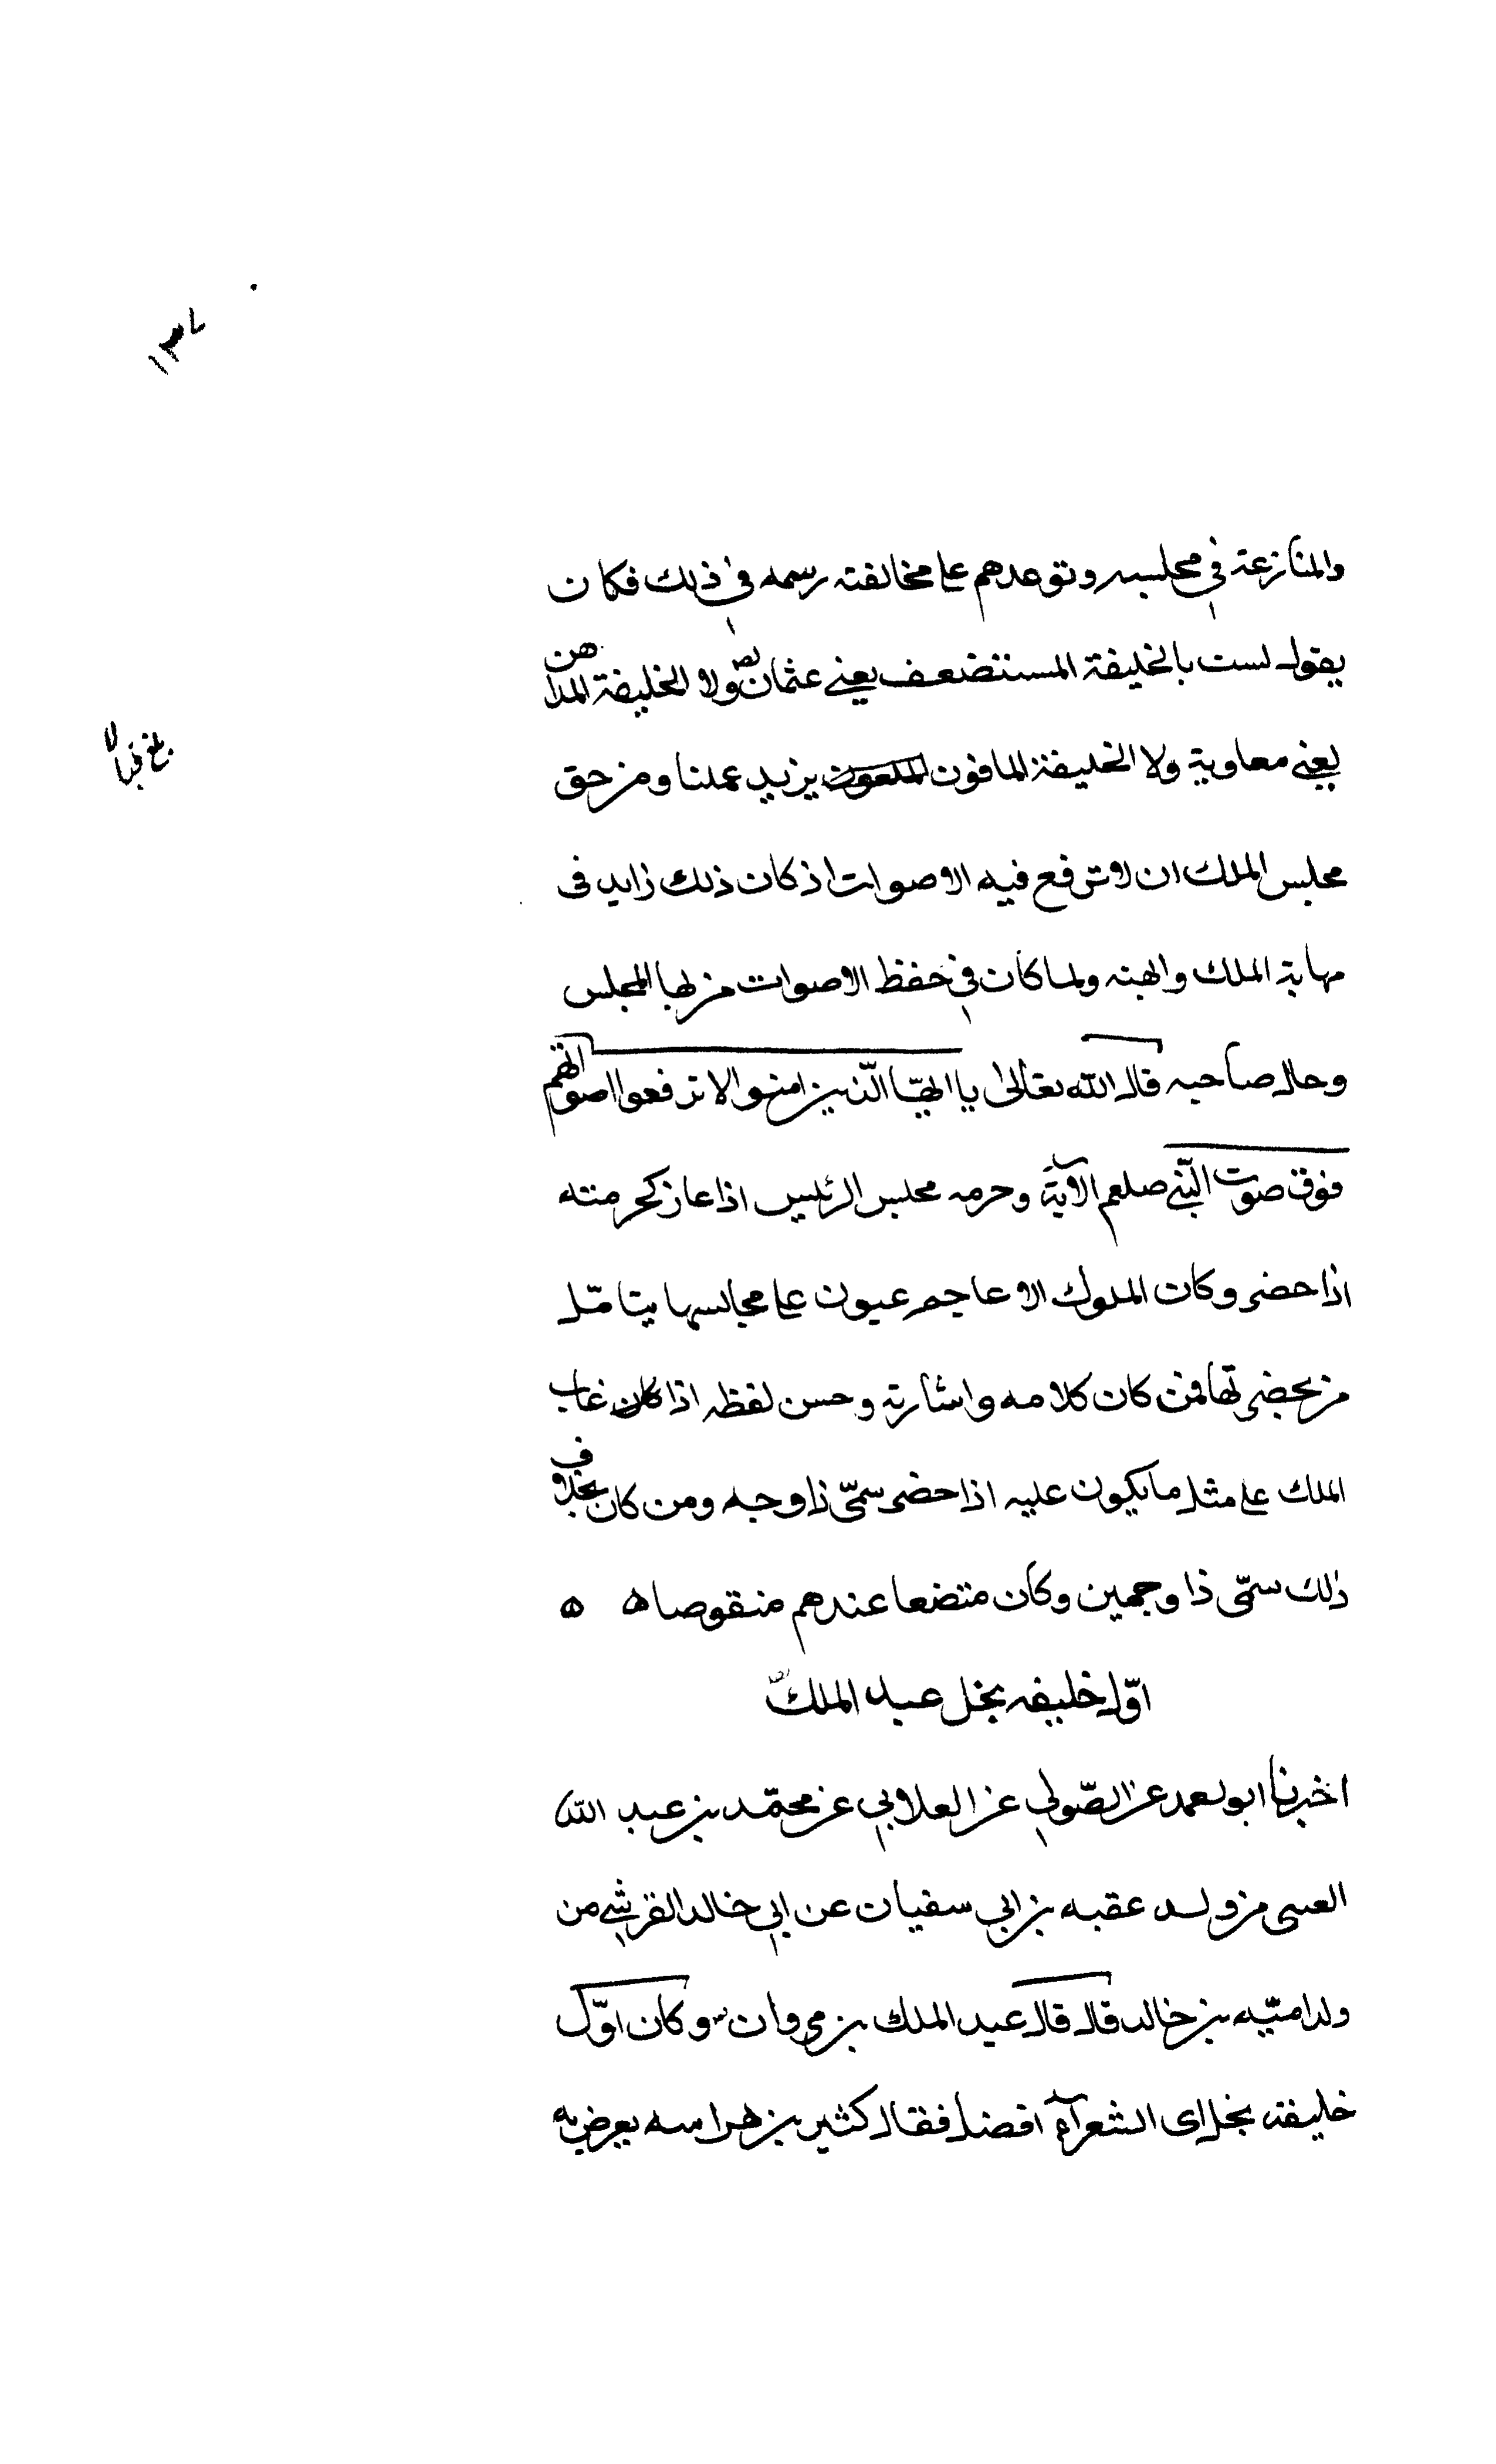 ١٣٧
والمنازعة في مجلسه وتوعدهم على مخالفته رسمه في ذلك فكان
يقول لست بالخليفة المستضعف يعني عثمان ولا الخليفة المداهن
يعني معاوية ولا الخليفة المافون يزيد عملنا ومن حق
مجلس الملك ان لا ترفع فيه الاصوات اذ كان ذلك زايد في
مهابة الملك والهبته ولما كان في حفظ الاصوات من لها المجلس
وحال صاحبه قال الله تعالى يا ايها الذين امنوا لا ترفعوا اصواتكم
فوق صوت النبي صلعم الآية وحرمه مجلس الرئيس اذا كحرمته
اذا حضر وكان الملوك الاعاجم عيون على مجالسها يتامل
من يحضرتها فمن كان كلامه واشارته وحسن لفظه اذا غاب
الملك على مثل ما يكون عليه اذا حضر سمّى ذا وجه ومن كان بخلاف
ذلك سمّى ذا وجهين وكان متضعا عندهم منقوصا ه ه
اوّل خليفه بخل عبد الملك
اخبرنا ابو احمد عن الصّولي عن العلابي عن محمّد بن عبد الله
من ولد عقبه بن ابي سفيان عن ابي خالد القرشي من
ولد اميّه بن خالد قال قال عبد الملك بن مروان وكان اوّل
خليفة بخل اى الشعرآء افضل فقال كثير بن هراسه يعرض به